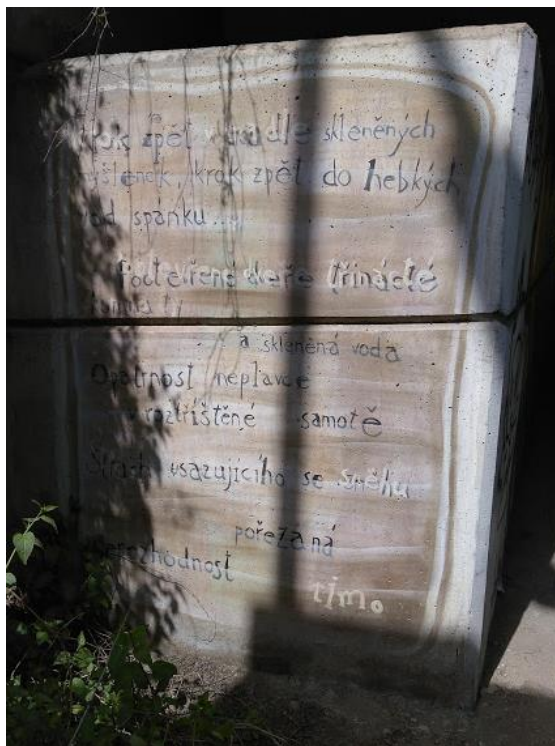 krok zpět v sádle skleněných
myšlenek, krok zpět do hebkých
vod spánku...
Pootevřené dveře třinácté
komnaty
a skleněná voda
Opatrnost neplavce
v roztříštěné samotě
Strach usazujícího se sněhu
pořezaná
nerozhodnost
tim.